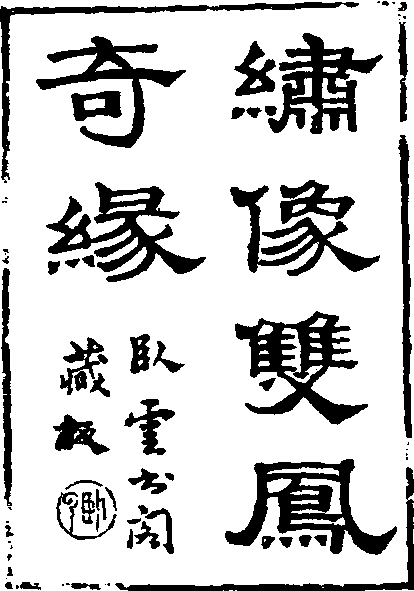 繡像雙鳳
奇緣
臥雲書閣
藏板